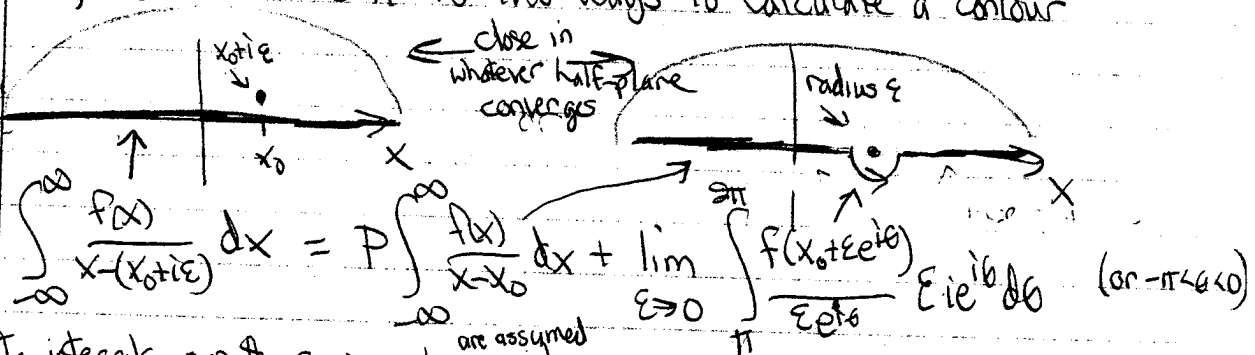 two ways to calculate a contour
x₀+iε
close in
whatever half-plane
converges
radius ε
x₀
X
X
∫_{-∞}^{∞} f(x)/(x-(x₀+iε)) dx = P∫_{-∞}^{∞} f(x)/(x-x₀) dx + lim_{ε→0} ∫_{π}^{2π} f(x₀+εe^{iθ})/(εe^{iθ}) εie^{iθ}dθ (or -π<θ<0)
are assumed
integrals